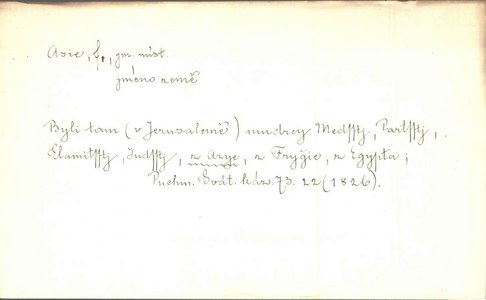 Asie, f., jm. míst.
jméno země
Byli tam (v Jerusalemě) mudrcy Medsstj, Partsstj,
Elamitsstj, Judsstj, z Azye, z Frygie, z Egypta;
Puchm. Svát. káz. 73. 22 (1826).